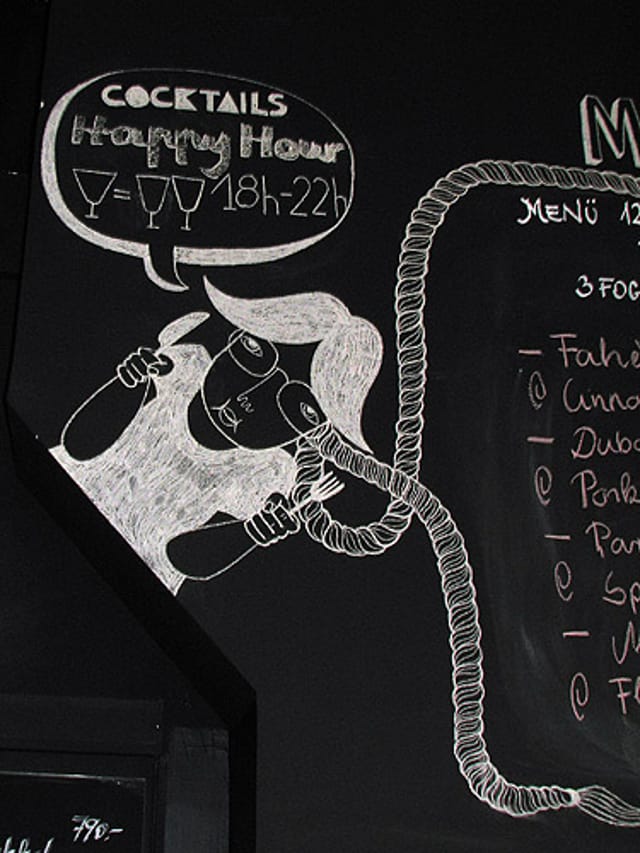 COCKTAILS
Happy Hour
= 18h-22h
M
MENÜ 12
3 FOG
- Fahé
@ Cinna
- Dubo
@ Pork
- Par
@ Sp
- M
@ Fl
790.-